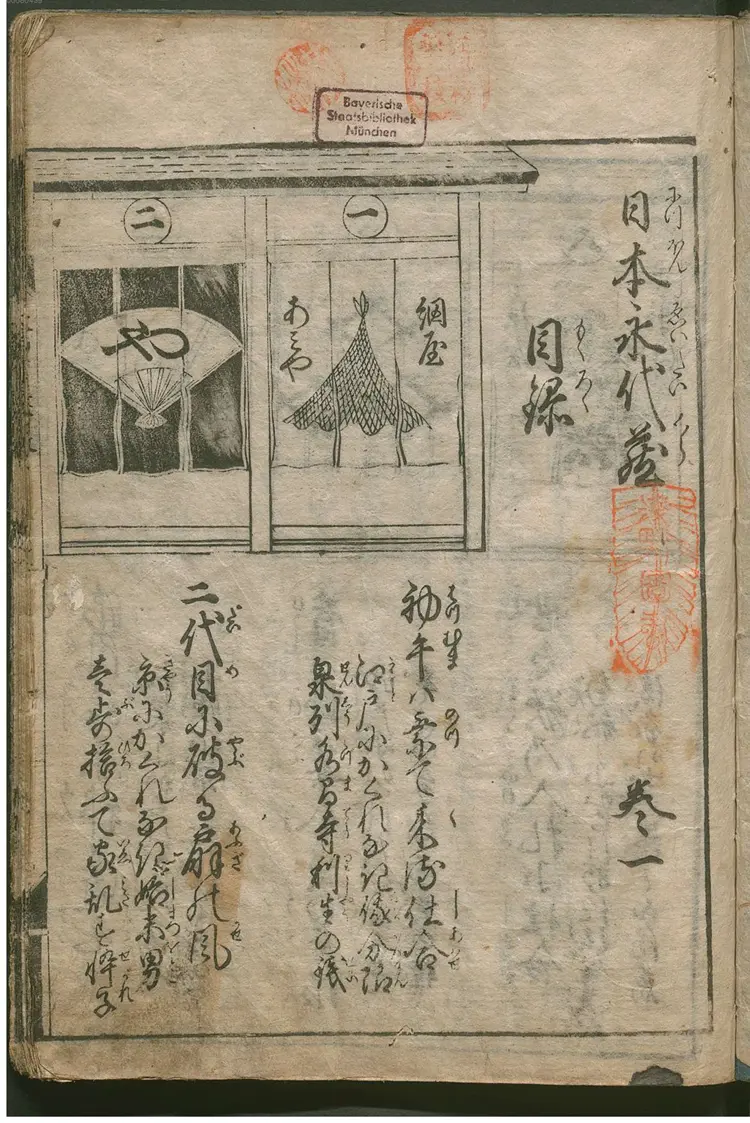 Bayerische
Staatsbibliothek
München
日本永代蔵 巻一
目録
もくろく
一
網屋
あミや
二
初午ハ乗て来る仕合
江戸にかくれなき俄分限
泉州水間寺利生の銭
二代目に破る扇の風
京にかくれなき始末男
壱歩拾ふて家乱す忰子